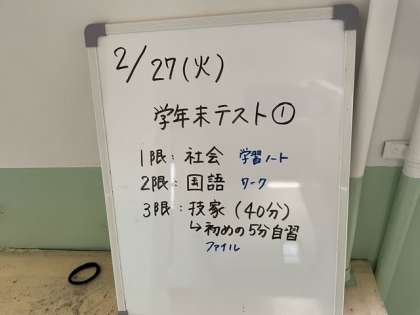 2/27(火)
学年末テスト①
1限:社会 学習ノート
2限:国語 ワーク
3限:技家(40分)
↳初めの5分自習
ファイル